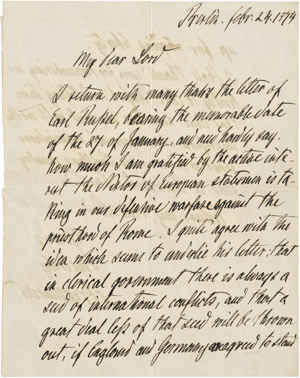 Berlin. Febr. 24. 1874
My dear Lord
I return with many thaks the letter of
Earl Russel, bearing the memorable date
of the 27 of January, and need hardly say
how much I am gratified by the active inte-
rest the Nestor of European statesmen is ta-
king in our defensive warfare against the
priesthood of Rome. I quite agree with the
idea which seems to underlie his letter: that
in clerical government there is always a
seed of international conflicts, and that a
great deal less of that seed will be thrown
out, if England and Germany are agreed to stand